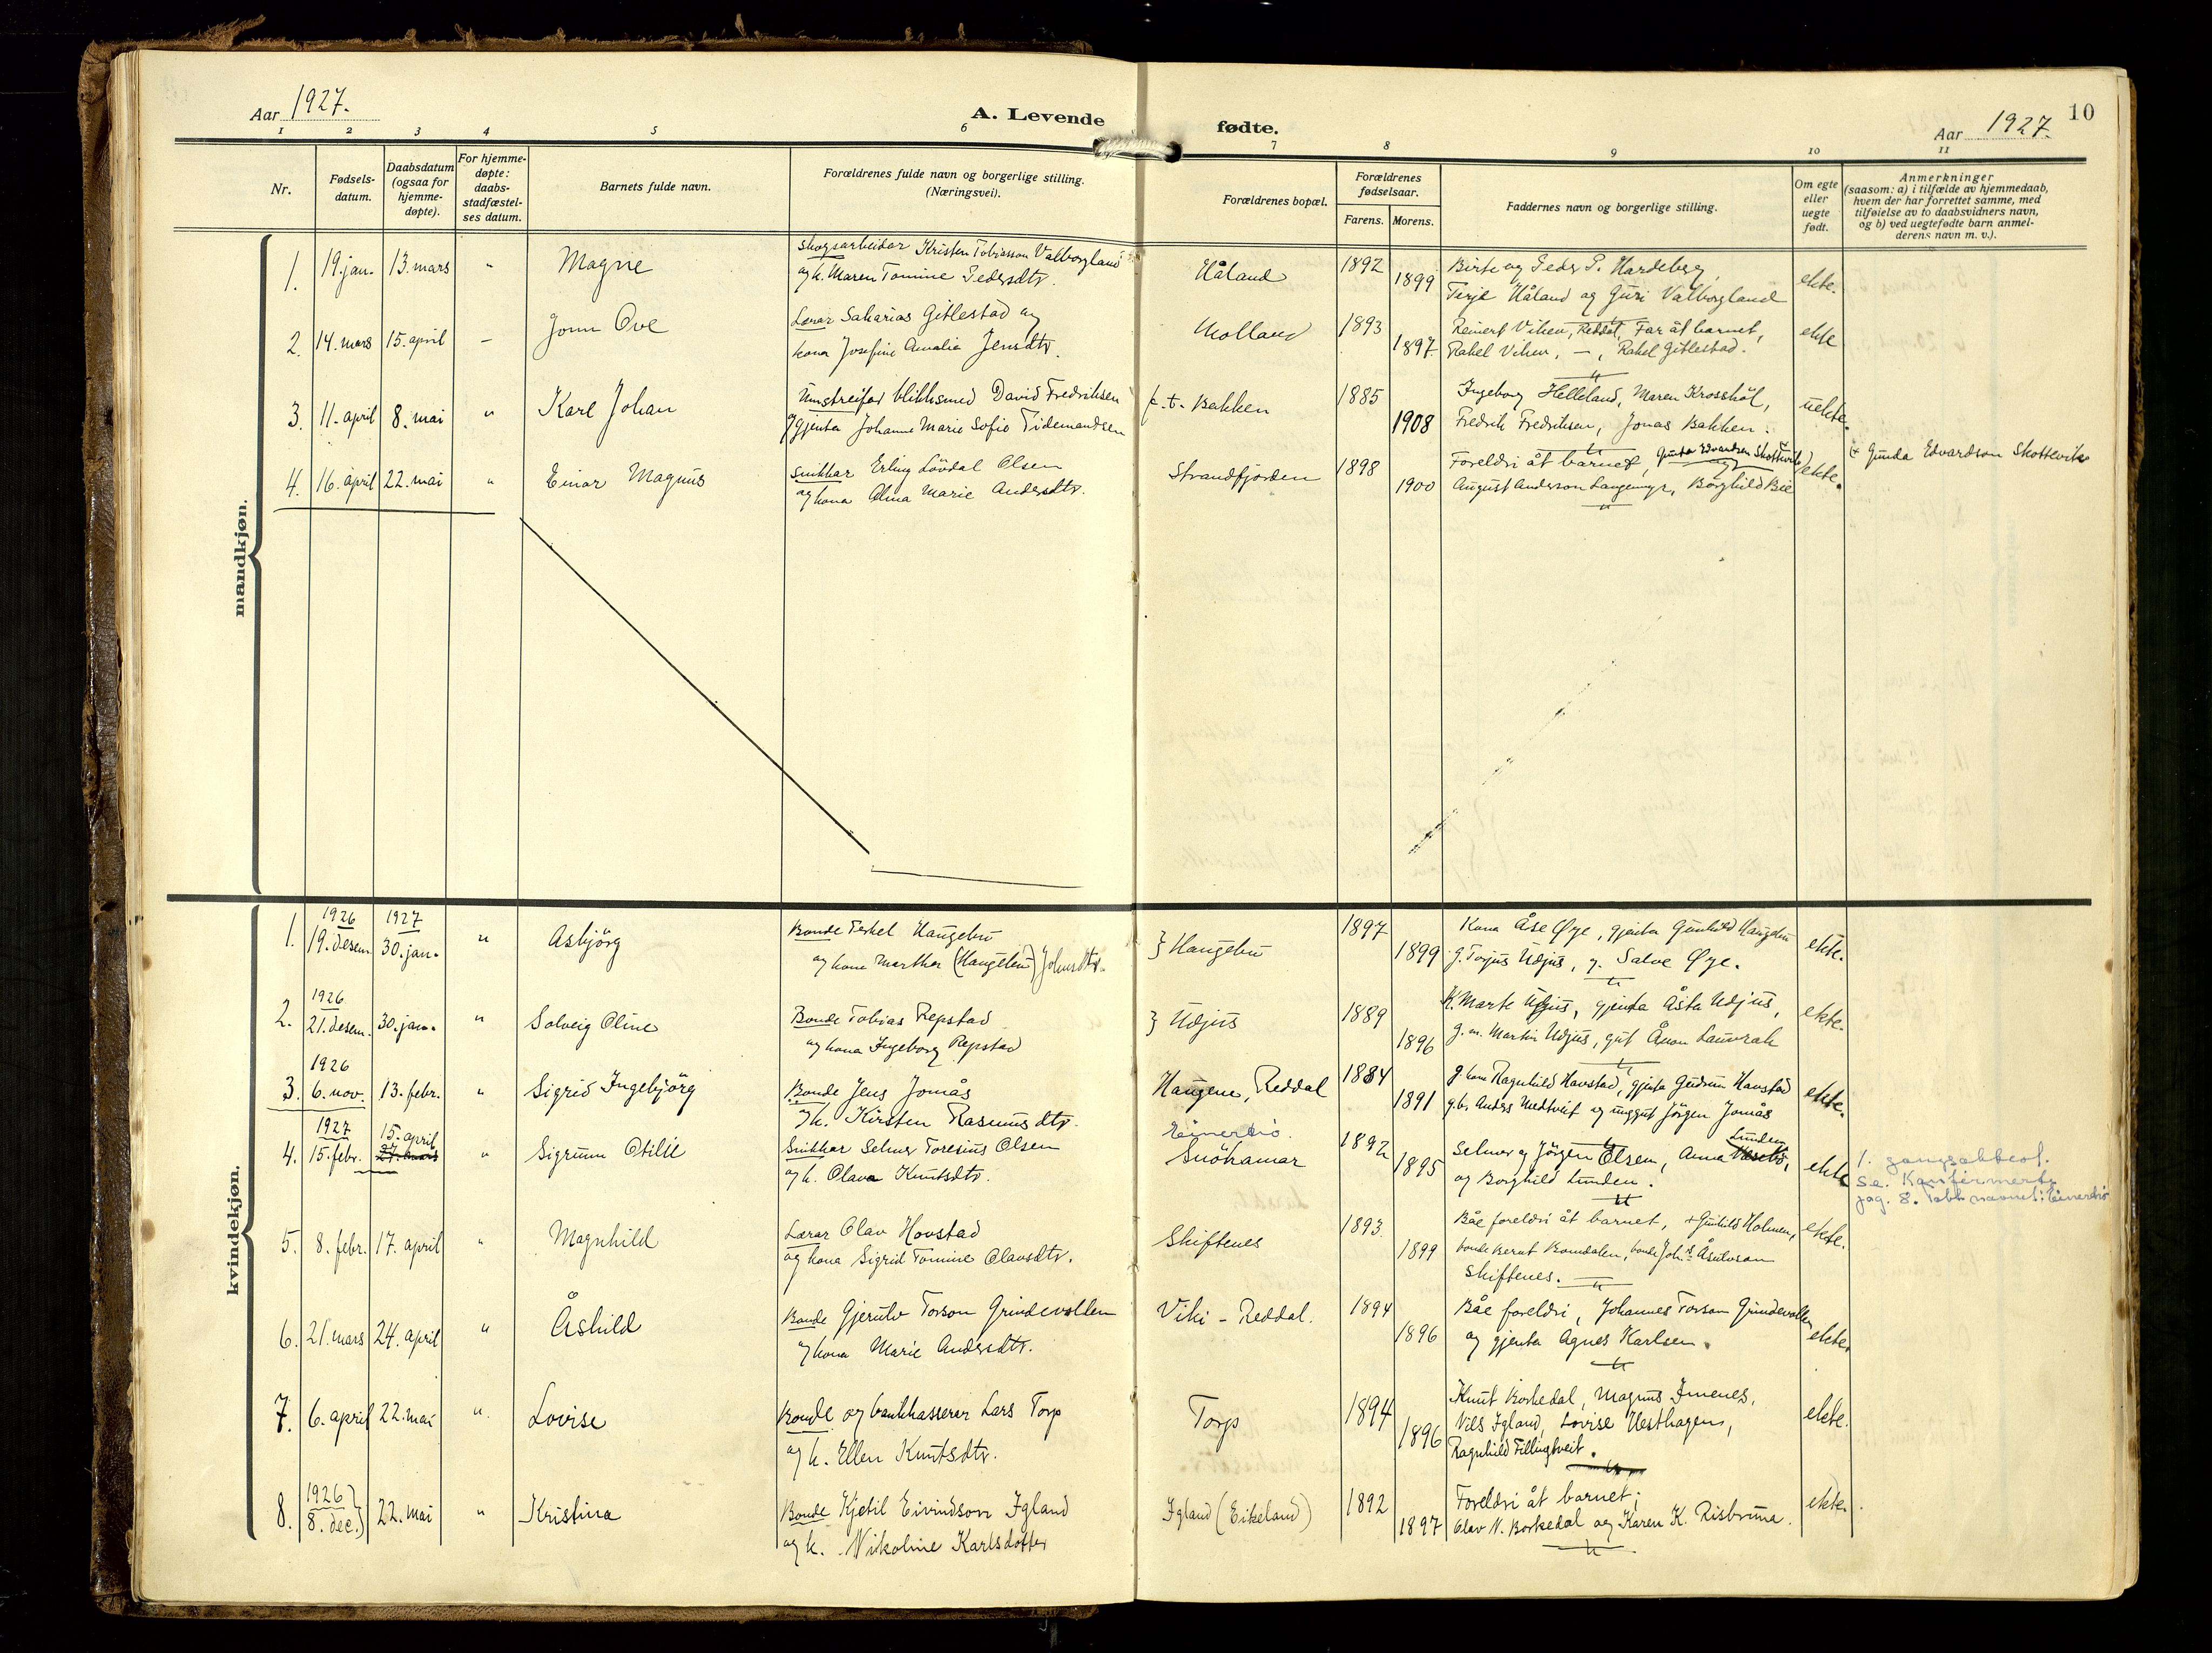 Aar 1927.
A. Levende fødte.
Aar 1927. 10
1 2 3 4 5 6 7 8 9 10 11
Nr.
Fødsels-
datum.
Daabsdatum
(ogsaa for
hjemme-
døpte).
For hjemme-
døpte:
daabs-
stadfæstel-
ses datum.
Barnets fulde navn.
Forældrenes fulde navn og borgerlige stilling.
(Næringsvei).
Forældrenes bopæl.
Forældrenes
fødselsaar.
Farens. Morens.
Faddernes navn og borgerlige stilling.
Om egte
eller
uegte
født.
Anmerkninger
(saasom: a) i tilfælde av hjemmedaab,
hvem der har forrettet samme, med
tilføielse av to daabsvidners navn,
og b) ved uegtefødte barn anmel-
derens navn m. v.).
mandkjøn.
1. 19. jan. 13. mars " Magne
skogsarbeidar Kristen Tobiasson Valborgland
og k. Maren Tomine Pedersdtr.
Håland 1892 1899
Birte og Peder P. Hardeberg,
Terje Håland og Guri Valborgland
ekte.
2. 14. mars 15. april - Jonn Ove
Lærar Sakarias Gitlestad og
kona Josefine Amalie Jensdtr.
Molland 1893 1897
Reinert Viken, Reddal, Far åt barnet,
Rakel Viken, - , Rakel Gitlestad.
ekte
3. 11. april 8. mai " Karl Johan
Umstreifar blikksmed David Fredriksen
og gjenta Johanne Marie Sofie Tidemandsen
p.t. Bakken 1885 1908
Ingeborg Helleland, Maren Krosshôl,
Fredrik Fredriksen, Jonas Bakken.
uekte.
4. 16. april 22. mai " Einar Magnus
snikkar Erling Lövdal Olsen
og kona Alma Marie Andersdtr.
Strandfjorden 1898 1900
Foreldri åt barnet, Gunda Edvardsen Skottevik
August Anderson Langemyr, Borghild Bie
ekte.
Gunda Edvardson Skottevik
kvindekjøn.
1. 1926 19. desem. 1927 30. jan. " Asbjörg
Bonde Terkel Haugebu
og kona Marthea (Haugebu) Johnsdtr.
} Haugebu 1897 1899
Kona Åse Øye, gjenta Gunhild Haugebu
g. Torjus Udjus, g. Salve Øye.
ekte.
2. 1926 21. desem. 30. jan. " Solveig Oline
Bonde Tobias Repstad
og kona Ingeborg Repstad
} Udjus 1889 1896
K. Marte Udjus, gjenta Åsta Udjus,
g.m. Martin Udjus, gut Ånon Lauvrak
ekte.
3. 1926 6. nov. 13. febr. " Sigrid Ingebjörg
Bonde Jens Jomås
og k. Kirsten Rasmusdtr.
Haugene, Reddal 1884 1891
g. kone Ragnhild Havstad, gjenta Gudrun Havstad
g.b. Anders Medtveit og unggut Jörgen Jomås
ekte.
4. 1927 15. febr. 15. april 27. mars " Sigrunn Otilie
Snikkar Selmer Toresius Olsen
og k. Olava Knutsdtr.
Einerbio.
Snöhamar 1892 1895
Selmer og Jörgen Olsen, Anna Lunden
og Borghild Lunden.
ekte
5. 8. febr. 17. april " Magnhild
Lærar Olav Hovstad
og kona Sigrid Tomine Olavsdtr.
Skiftenes 1893. 1899
Båe foreldri åt barnet, + Gunhild Holmen,
bonde Bernt Romdalen, bonde Joh.s Åsulvson
Skiftenes.
ekte.
6. 21. mars 24. april " Åshild
Bonde Gjerulv Torson Grindevollen
og kona Marie Andersdtr.
Viki - Reddal. 1894 1896
Båe foreldri, Johannes Torson Grindevollen
og gjenta Agnes Karlsen.
ekte.
7. 6. april 22. mai " Lovise
Bonde og bankkasserar Lars Torp
og k. Ellen Knutsdtr.
Torp 1894 1896
Knut Borkedal, Magnus Imenes,
Nils Igland, Lovise Vesthagen,
Ragnhild Fillingtveit.
ekte.
8. 1926 8. dec. } 22. mai " Kristina
Bonde Kjetil Eivindson Igland
og k. Nikoline Karlsdotter
Igland (Eikeland) 1892 1897
Foreldri åt barnet;
Olav N. Borkedal og Karen K. Risbruna.
ekte.